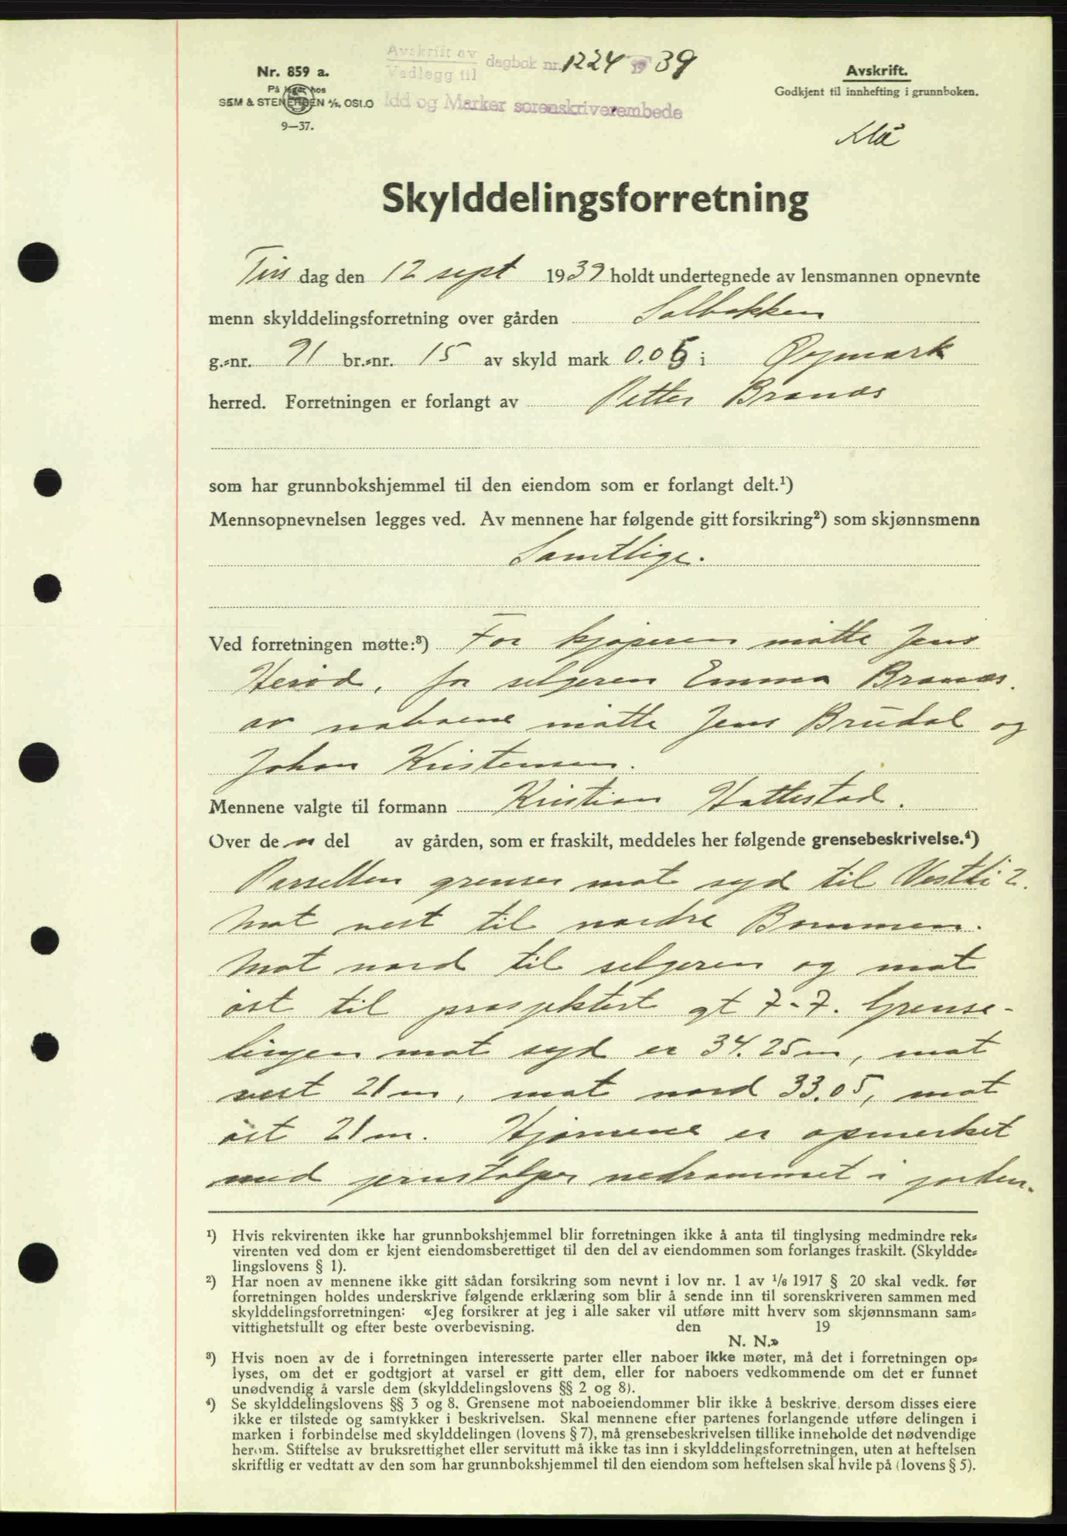 Avskrift av
Vedlegg til dagbok nr. 1224 19 39
Idd og Marker sorenskriverembede
Nr. 859 a.
På lager hos
SEM & STENERSEN A/S, OSLO
9—37.
Avskrift.
Godkjent til innhefting i grunnboken.
Skylddelingsforretning
Tirs dag den 12 sept 1939 holdt undertegnede av lensmannen opnevnte
menn skylddelingsforretning over gården Solbakken
g.-nr. 91 br.-nr. 15 av skyld mark 0.05 i Øymark
herred. Forretningen er forlangt av Petter Brands
som har grunnbokshjemmel til den eiendom som er forlangt delt.¹)
Mennsopnevnelsen legges ved. Av mennene har følgende gitt forsikring²) som skjønnsmenn
Samtlige.
Ved forretningen møtte:³) For kjøperen møtte Jens
Herød, for selgeren Emma Brands.
av naboene møtte Jens Brudal og
Johan Kristensen.
Mennene valgte til formann Kristian Hattestad.
Over den del av gården, som er fraskilt, meddeles her følgende grensebeskrivelse.⁴)
Parsellen grenser mot syd til Vestli 2.
Mot vest til nordre Bommen.
Mot nord til selgeren og mot
øst til prosjektert gt 7-7. Grense-
linjen mot syd er 34.25m, mot
vest 21m, mot nord 33.05, mot
øst 21m. Hjørnene er opmerket
med jernstolper nedrammet i jorden.
¹) Hvis rekvirenten ikke har grunnbokshjemmel blir forretningen ikke å anta til tinglysing medmindre rek-
virenten ved dom er kjent eiendomsberettiget til den del av eiendommen som forlanges fraskilt. (Skyldde-
lingslovens § 1).
²) Har noen av mennene ikke gitt sådan forsikring som nevnt i lov nr. 1 av ¹/₆ 1917 § 20 skal vedk. før
forretningen holdes underskrive følgende erklæring som blir å sende inn til sorenskriveren sammen med
skylddelingsforretningen: «Jeg forsikrer at jeg i alle saker vil utføre mitt hverv som skjønnsmann sam-
vittighetsfullt og efter beste overbevisning. den 19
N. N.»
³) Hvis noen av de i forretningen interesserte parter eller naboer ikke møter, må det i forretningen op-
lyses, om det er godtgjort at varsel er gitt dem, eller for naboers vedkommende om det er funnet
unødvendig å varsle dem (skylddelingslovens §§ 2 og 8).
⁴) Se skylddelingslovens §§ 3 og 8. Grensene mot naboeiendommer blir ikke å beskrive, dersom disses eiere
ikke er tilstede og samtykker i beskrivelsen. Skal mennene efter partenes forlangende utføre delingen i
marken i forbindelse med skylddelingen (lovens § 7), må grensebeskrivelsen tillike inneholde det nødvendige
herom. Stiftelse av bruksrettighet eller servitutt må ikke tas inn i skylddelingsforretningen, uten at heftelsen
skriftlig er vedtatt av den som har grunnbokshjemmel til den eiendom som heftelsen skal hvile på (lovens § 5).